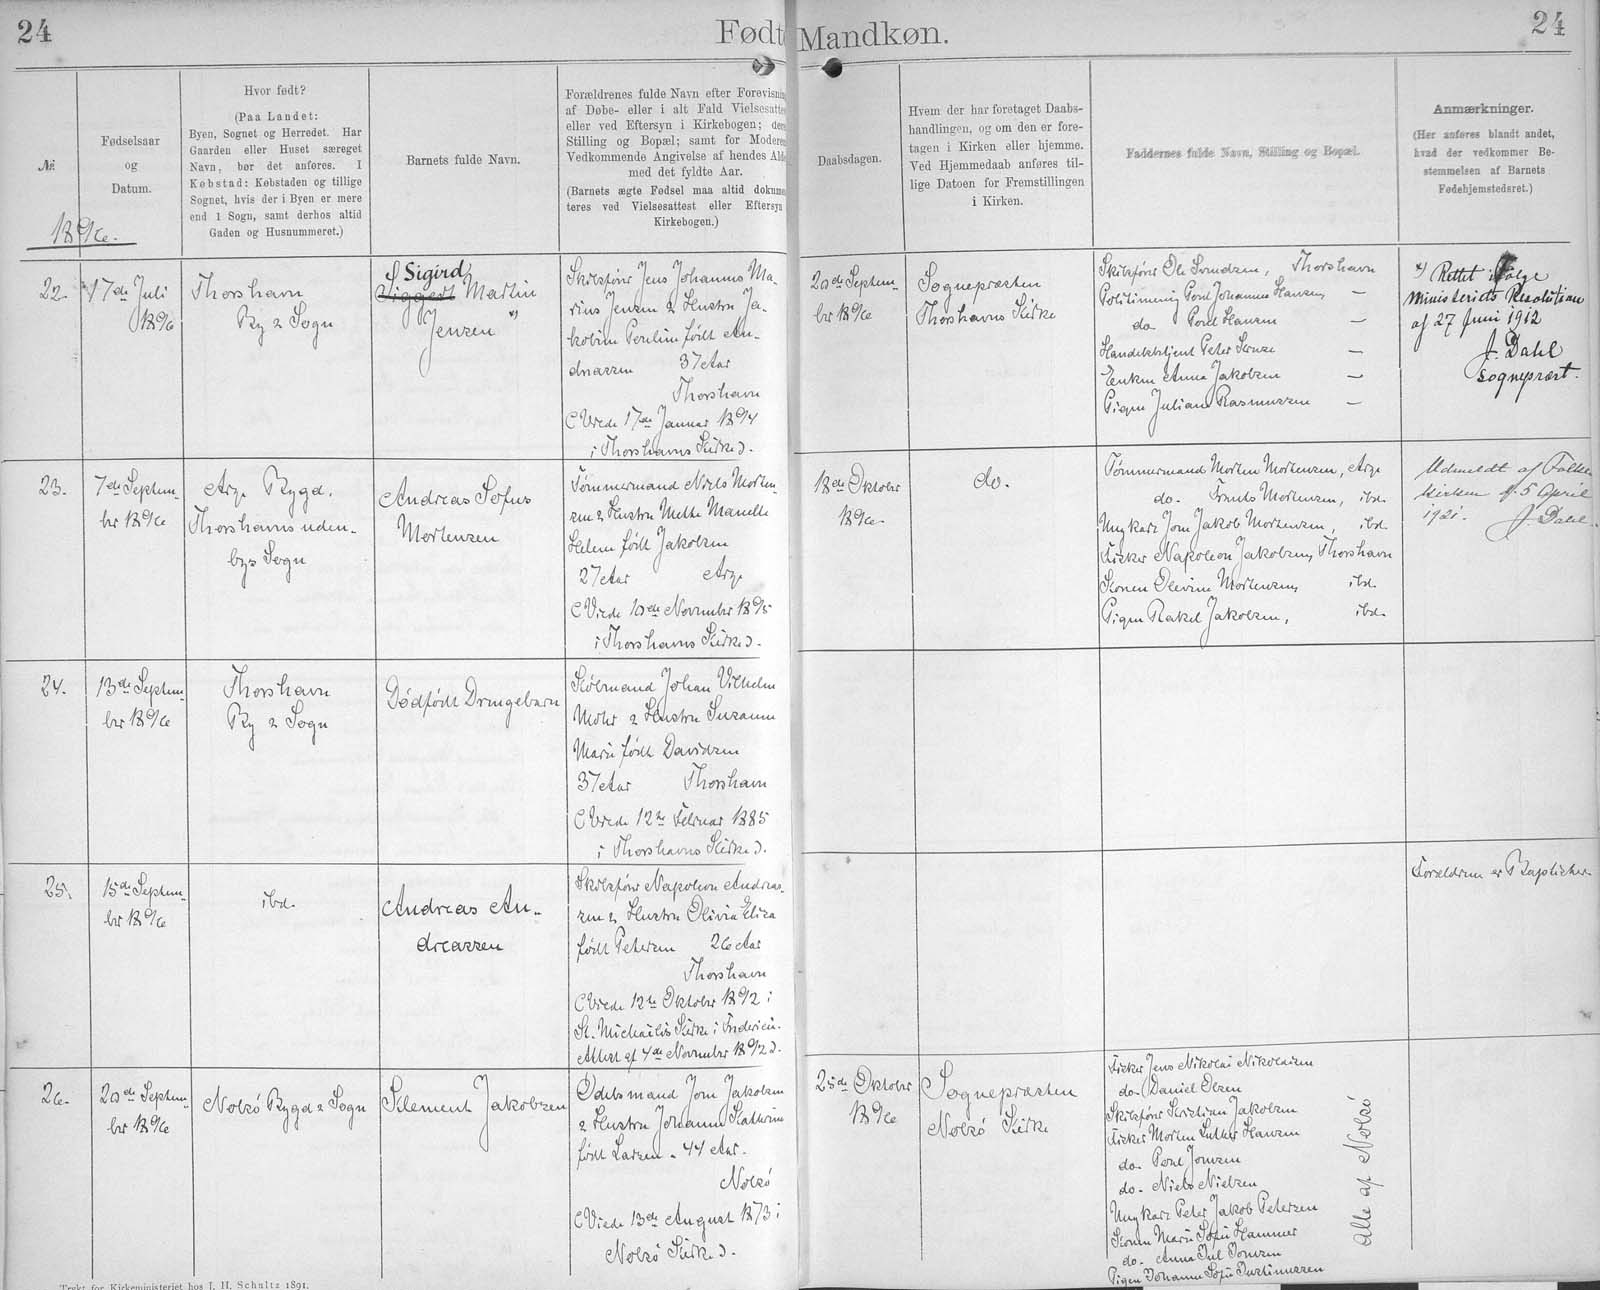 24
Født
Mandkøn.
24
№
Fødselsaar
og
Datum.
Hvor født?
(Paa Landet:
Byen, Sognet og Herredet. Har
Gaarden eller Huset særeget
Navn, bør det anføres. I
Købstad: Købstaden og tillige
Sognet, hvis der i Byen er mere
end 1 Sogn, samt derhos altid
Gaden og Husnummeret.)
Barnets fulde Navn.
Forældrenes fulde Navn efter Forevisnin
af Døbe- eller i alt Fald Vielsesatte
eller ved Eftersyn i Kirkebogen; dere
Stilling og Bopæl; samt for Modere
Vedkommende Angivelse af hendes Alde
med det fyldte Aar.
(Barnets ægte Fødsel maa altid dokume
teres ved Vielsesattest eller Eftersyn
Kirkebogen.)
Daabsdagen.
Hvem der har foretaget Daabs-
handlingen, og om den er fore-
tagen i Kirken eller hjemme.
Ved Hjemmedaab anføres til-
lige Datoen for Fremstillingen
i Kirken.
Faddernes fulde Navn, Stilling og Bopæl.
Anmærkninger.
(Her anføres blandt andet,
hvad der vedkommer Be-
stemmelsen af Barnets
Fødehjemstedsret.)
1896.
22.
17de Juli
1896
Thorshavn
By & Sogn
Sigurd
Martin
Jensen *)
Skibsfører Jens Johannes Ma-
rius Jensen & Hustru Ja-
kobine Pouline født An-
dreassen 37 Aar
Thorshavn
(Viede 17de Januar 1894
i Thorshavns Kirke).
20de Septem-
ber 1896
Sognepræsten
Thorshavns Kirke
Skibsfører Ole Svendsen, Thorshavn
Politibetjent Poul Johannes Hansen, —
do Poul Hansen —
Handelsbetjent Peter —
Enken Anna Jakobsen —
Pigen Juliane Rasmussen —
*) Rettet ifølge
Ministeriets Resolution
af 27 Juni 1912
J. Dahl
sognepræst.
23.
7de Septem-
ber 1896
Arge Bygd.
Thorshavns uden-
bys Sogn
Andreas Sofus
Mortensen
Tømmermand Niels Morten-
sen & Hustru Mette Manette
Helene født Jakobsen
27 Aar Arge
(Viede 10de November 1895
i Thorshavns Kirke).
18de Oktober
1896.
do.
Tømmermand Morten Mortensen, Arge
do. Frants Mortensen, ibd.
Ungkarl Jon Jakob Mortensen, ibd.
Fisker Napoleon Jakobsen, Thorshavn
Konen Olevine Mortensen, ibd.
Pigen Rakel Jakobsen, ibd.
Udmeldt af Folke-
kirken d. 5 April
1921. J. Dahl.
24.
13de Septem-
ber 1896
Thorshavn
By & Sogn
Dødfødt Drengebarn
Købmand Johan Vilhelm
Mohr & Hustru Susanne
Marie født Davidsen
37 Aar Thorshavn
(Viede 12te Februar 1885
i Thorshavns Kirke).
25.
15de Septem-
ber 1896
ibd.
Andreas An-
dreassen
Skibsfører Napoleon Andreas-
sen & Hustru Olivia Eliza
født Petersen 26 Aar
Thorshavn
(Viede 12te Oktober 1892 i
St. Michaelis Kirke i Fredericia.
Attest af 4de November 1892).
Forældrene er Baptister.
26.
20de Septem-
ber 1896
Nolsø Bygd & Sogn
Klement Jakobsen
Odelsmand Jon Jakobsen
& Hustru Johanne Kathrine
født Larsen. 44 Aar.
Nolsø
(Viede 13de August 1873 i
Nolsø Kirke).
25de Oktober
1896
Sognepræsten
Nolsø Kirke
Fisker Jens Nikolai Nikolaisen
do. Daniel Olsen
Skibsfører Kristian Jakobsen
Fisker Morten Luther Hansen
do. Poul Jensen
do. Niels Nielsen
Ungkarl Peter Jakob Petersen
Konen Marie Sofie Hammer
do. Anna Jul Joensen
Pigen Johanne Sofie Justinussen
Alle af Nolsø
Trykt for Kirkeministeriet hos J. H. Schultz 1891.